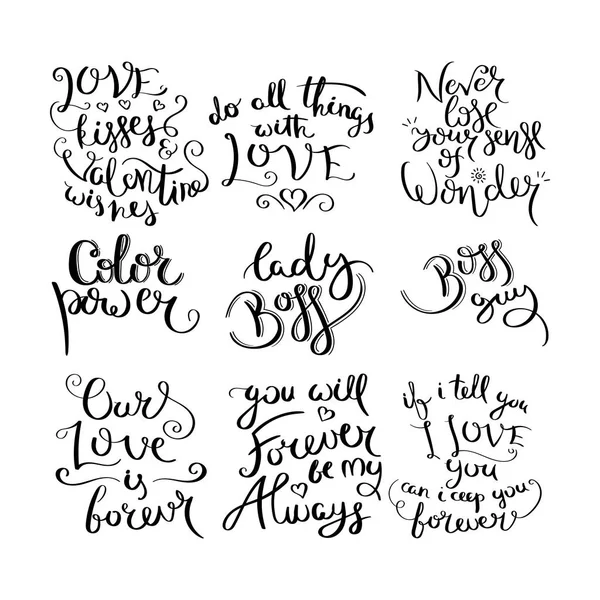 LOVE,
kisses &
Valentine
wishes
do all things
with
LOVE
Never
lose
your sense
of
Wonder
Color
power
lady
Boss
Boss
guy
Our
Love
is
forevr
you will
Forever
be my
Always
if i tell you
I LOVE
you
can i ceep you
forever